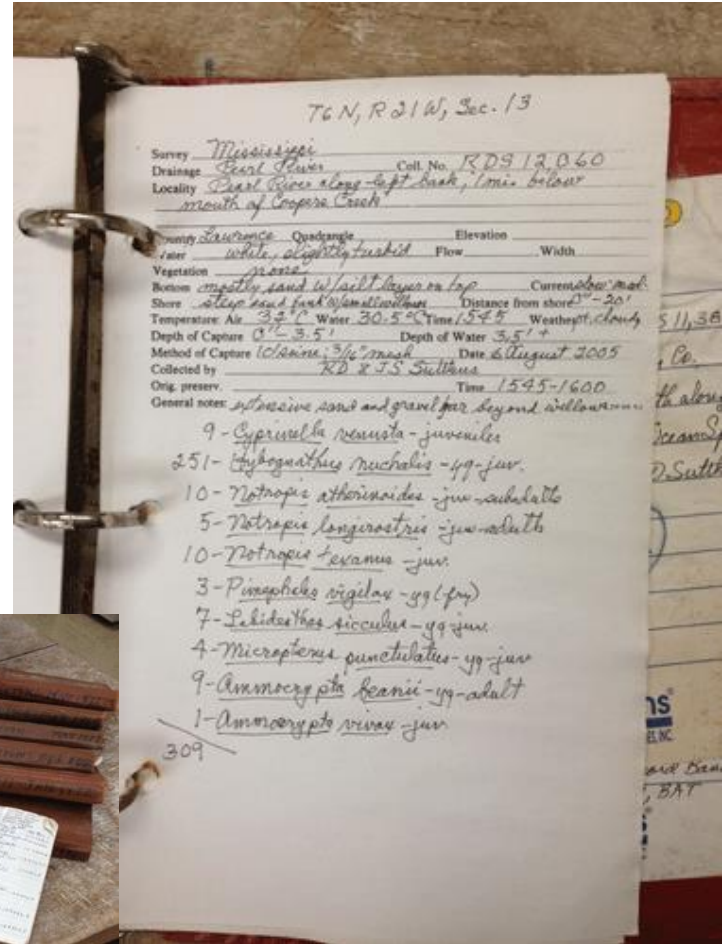 T6N, R21W, Sec. 13
Survey Mississippi
Drainage Pearl River Coll. No. RDS 12060
Locality Pearl River along left bank, 1 mi. below
mouth of Coopers Creek
County Lawrence Quadrangle Elevation
Water white, slightly turbid Flow Width
Vegetation none
Bottom mostly sand w/silt layer on top Current slow-mod.
Shore steep sand bank w/small willows Distance from shore 0"-20'
Temperature: Air 32°C Water 30.5°C Time 1545 Weather pt. cloudy
Depth of Capture 0"-3.5' Depth of Water 3.5'+
Method of Capture 10' seine; 3/16" mesh Date 6 August 2005
Collected by RD & JS Suttkus
Orig. preserv. Time 1545-1600
General notes: extensive sand and gravel bar beyond willow
9-Cyprinella venusta-juveniles
251-Hybognathus nuchalis-yg-juv.
10-Notropis atherinoides-juv-subadults
5-Notropis longirostris-juv-adults
10-Notropis texanus-juv.
3-Pimephales vigilax-yg(fry)
7-Labidesthes sicculus-yg-juv.
4-Micropterus punctulatus-yg-juv
9-Ammocrypta beanii-yg-adult
1-Ammocrypta vivax-juv.
309
$11,38
Co.
th along
D Suttk
ns
ES, INC.
BAT